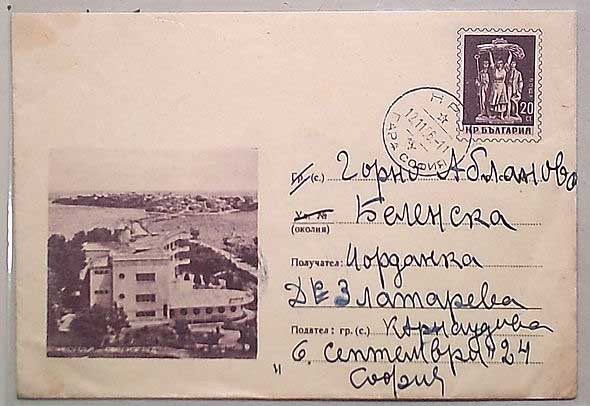 20
СТ
НР БЪЛГАРИЯ
НР
12.11.6
ГАРА СОФИЯ
Гр. (с.) Горно Абланово
Ул. №
(околия) Беленска
Получател: Йорданка
Златарева
Подател: гр. (с.) Карнаудова
6. септември 24
София
И